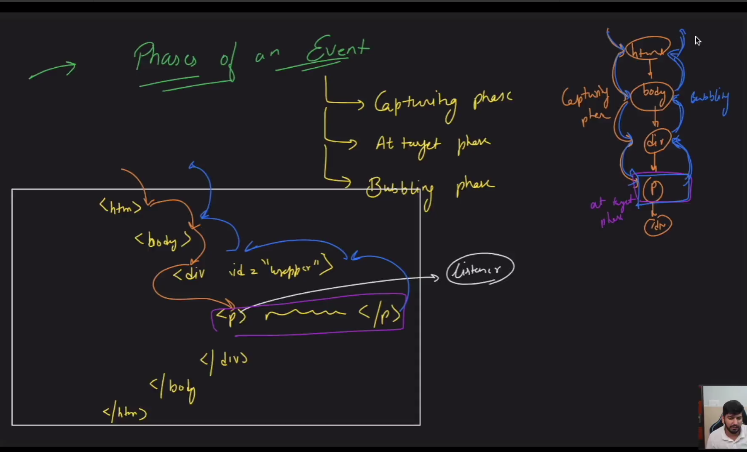 Phases of an Event
Capturing phase
At target phase
Bubbling phase
<htm>
<body>
<div id = "wrapper">
<p> </p>
</div>
</body
</htm>
listener
html
body
div
p
Capturing phase
Bubbling
at target
phase